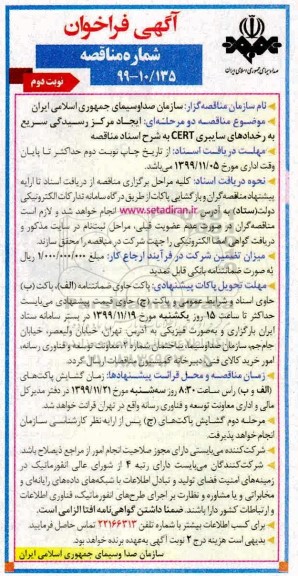 آگهی فراخوان
شماره مناقصه
۹۹-۱۰/۱۳۵
صداوسیمای جمهوری اسلامی ایران
نوبت دوم
نام سازمان مناقصه‌گزار: سازمان صداوسیمای جمهوری اسلامی ایران
موضوع مناقصه دو مرحله‌ای: ایجاد مرکز رسیدگی سریع
به رخدادهای سایبری CERT به شرح اسناد مناقصه
مهلت دریافت اسناد: از تاریخ چاپ نوبت دوم حداکثر تا پایان
وقت اداری مورخ ۱۳۹۹/۱۱/۰۵ می‌باشد.
نحوه دریافت اسناد: کلیه مراحل برگزاری مناقصه از دریافت اسناد تا ارایه
پیشنهاد مناقصه‌گران و بازگشایی پاکات از طریق درگاه سامانه تدارکات الکترونیکی
دولت(ستاد) به آدرس www.setadiran.ir انجام خواهد شد و لازم است
مناقصه‌گران در صورت عدم عضویت قبلی، مراحل ثبت‌نام در سایت مذکور و
دریافت گواهی امضا الکترونیکی را جهت شرکت در مناقصه را محقق سازند.
میزان تضمین شرکت در فرآیند ارجاع کار: مبلغ ۱/۰۰۰/۰۰۰/۰۰۰ ریال
به صورت ضمانتنامه بانکی قابل تمدید
مهلت تحویل پاکات پیشنهادی: پاکت حاوی ضمانتنامه (الف)، پاکت (ب)
حاوی اسناد و شرایط عمومی و پاکت (ج) حاوی قیمت پیشنهادی می‌بایست
حداکثر تا ساعت ۱۵ روز یکشنبه مورخ ۱۳۹۹/۱۱/۱۹ در بستر سامانه ستاد
ایران بارگزاری و به‌صورت فیزیکی به آدرس: تهران، خیابان ولیعصر، خیابان
جام‌جم، سازمان صداوسیما، ساختمان شماره ۳، معاونت توسعه و فناوری رسانه،
امور خرید کالای فنی، دبیرخانه کمیسیون مناقصات ارسال گردد.
زمان مناقصه و محل قرائت پیشنهادها: زمان گشایش پاکت‌های
(الف و ب) راس ساعت ۸:۳۰ روز سه‌شنبه مورخ ۱۳۹۹/۱۱/۲۱ در دفتر مدیرکل
مالی و اداری معاونت توسعه و فناوری رسانه واقع در تهران قرائت خواهد شد.
مرحله دوم گشایش پاکت‌های (ج) پس از ارایه نظر کارشناسی سازمان
انجام خواهد پذیرفت.
شرکت‌کننده می‌بایستی دارای مجوز صلاحیت انجام امور از مراجع ذیصلاح باشد.
شرکت‌کنندگان می‌بایست دارای رتبه ۴ از شورای عالی انفورماتیک در
زمینه‌های امنیت فضای تولید و تبادل اطلاعات یا شبکه‌های داده‌های رایانه‌ای و
مخابراتی و یا مشاوره و نظارت بر اجرای طرح‌های انفورماتیک، فناوری اطلاعات
و ارتباطات کشور دارا باشند. ضمنا داشتن گواهی‌نامه افتا الزامی است.
برای کسب اطلاعات بیشتر با شماره تلفن ۲۲۱۶۶۳۱۳ تماس حاصل فرمایید.
بدیهی است هزینه درج ۲ نوبت آگهی به‌عهده برنده خواهد بود.
سازمان صدا وسیمای جمهوری اسلامی ایران